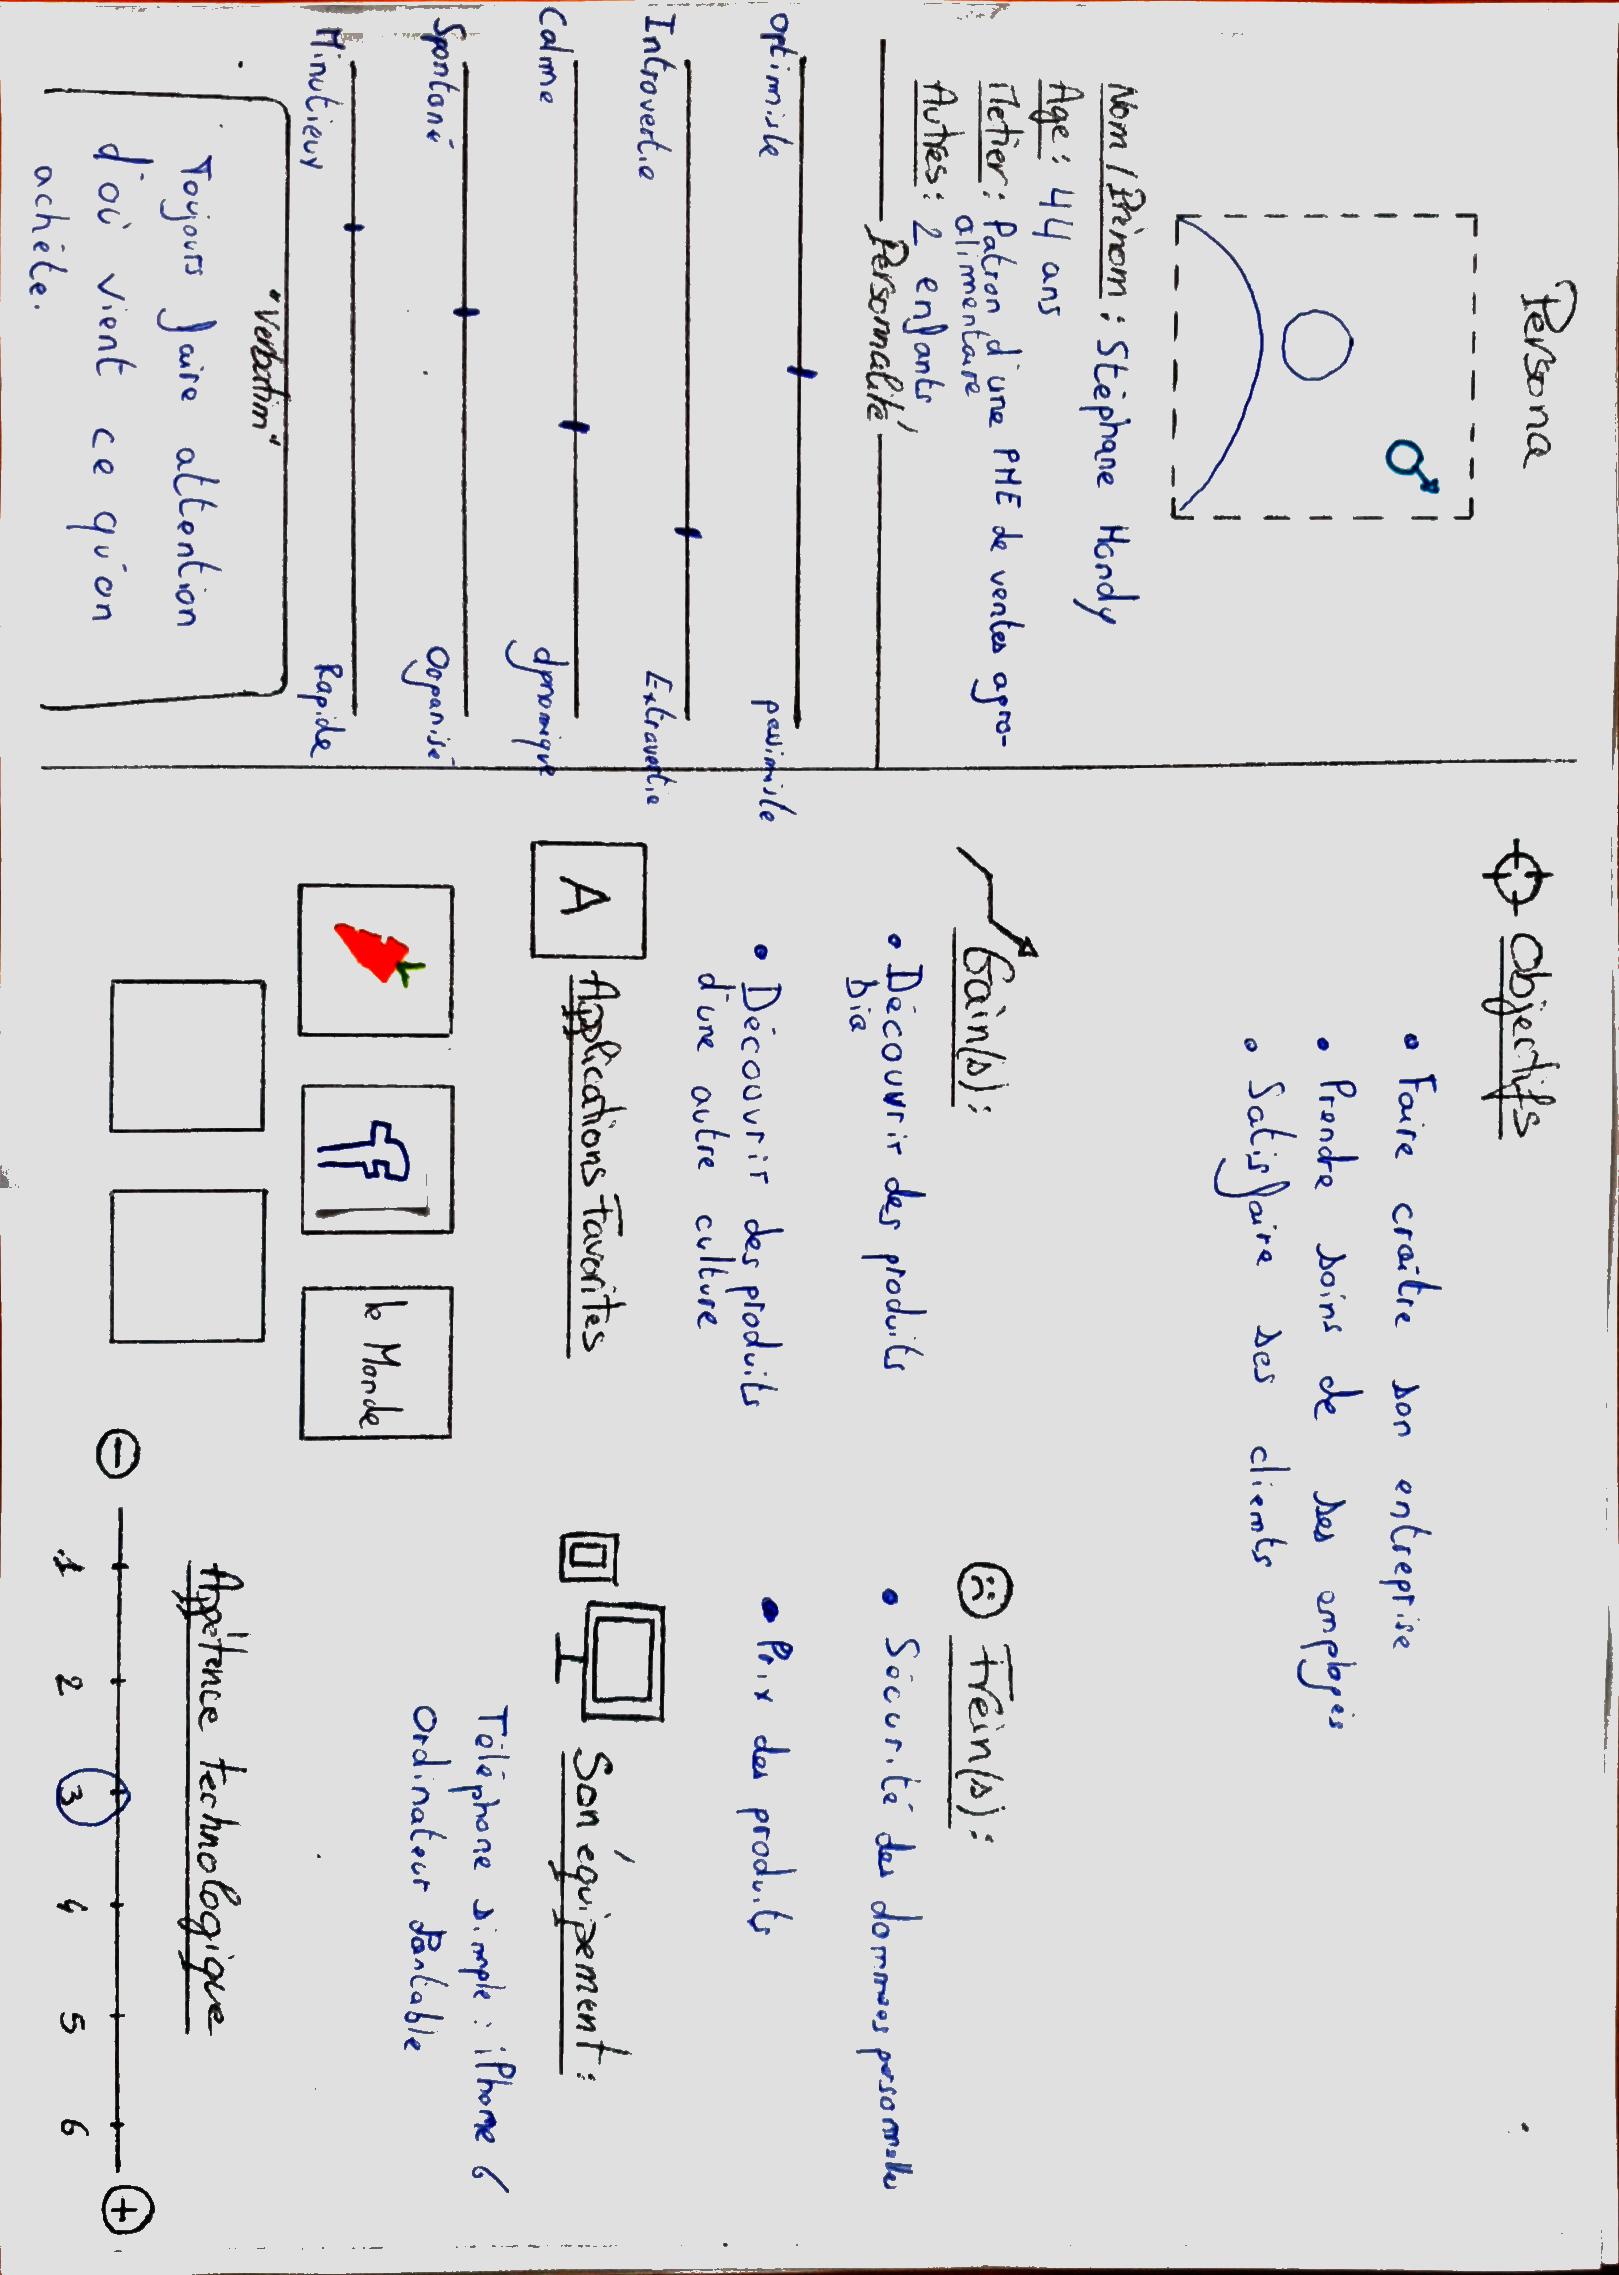 Persona
Nom / Prénom : Stéphane Handy
Age : 44 ans
Métier : Patron d'une PME de ventes agro-
alimentaire
Autres : 2 enfants
Personnalité
optimiste pessimiste
Introvertie Extravertie
Calme dynamique
Spontané Organisé
Minutieux Rapide
"Verbatim"
Toujours faire attention
d'où vient ce qu'on
achète.
Objectifs
• Faire craître son entreprise
• Prendre soins de ses employés
• Satisfaire ses clients
Gain(s) :
• Découvrir des produits
bio
• Découvrir des produits
d'une autre culture
Frein(s) :
• Sécurité des données personnelles
• Prix des produits
A Applications Favorites
f
le Monde
Son équipement :
Téléphone simple : iPhone 6
Ordinateur Portable
Appétence technologique
- 1 2 3 4 5 6 +